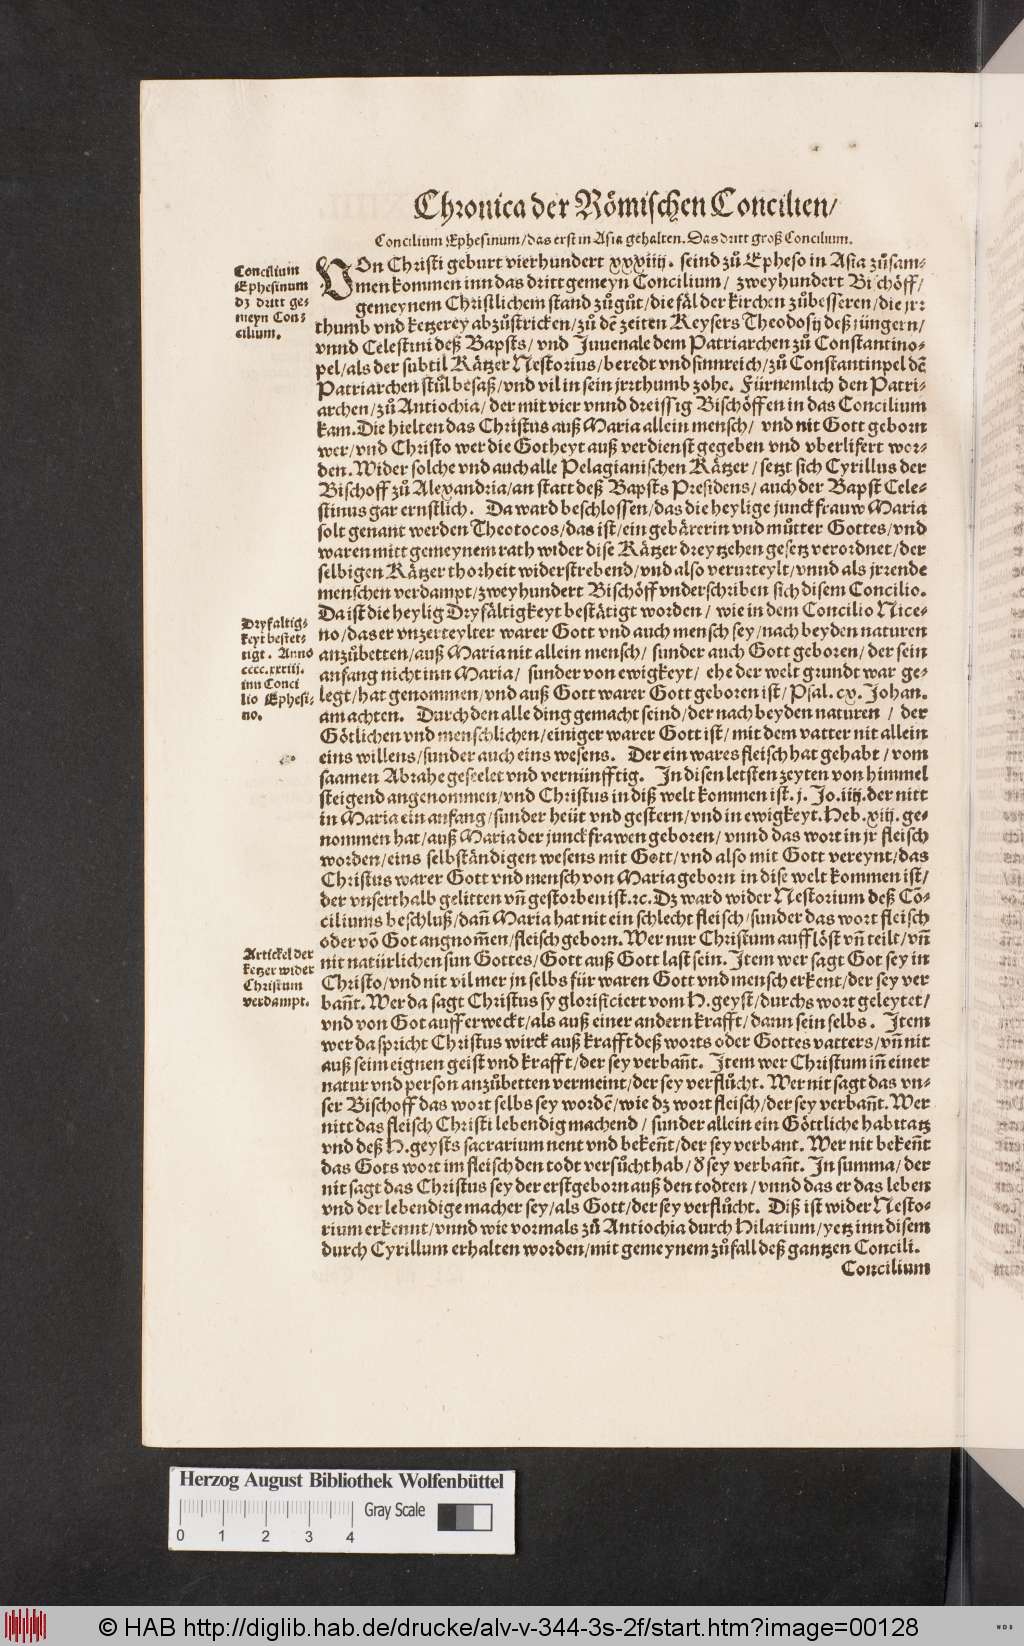 Chronica der Römischen Concilien/
Concilium Ephesinum/das erst in Asia gehalten. Das dritt groß Concilium.
Concilium
Ephesinum
dz dritt ge-
meyn Con-
cilium.
VOn Christi geburt vierhundert xxxiiij. seind zů Epheso in Asia zůsam-
men kommen inn das dritt gemeyn Concilium/ zweyhundert Bischöff/
gemeynem Christlichem stand zůgůt/die fäl der kirchen zůbesseren/die jrr-
thumb vnd ketzerey abzůstricken/zů dē zeiten Keysers Theodosij deß jüngern/
vnnd Celestini deß Bapsts/ vnd Juuenale dem Patriarchen zů Constantino-
pel/als der subtil Kätzer Nestorius/beredt vnd sinnreich/zů Constantinpel dē
Patriarchen stůl besaß/vnd vil in sein jrrthumb zohe. Fürnemlich den Patri-
archen/zů Antiochia/der mit vier vnnd dreissig Bischöffen in das Concilium
kam. Die hielten das Christus auß Maria allein mensch/ vnd nit Gott geborn
wer/vnd Christo wer die Gotheyt auß verdienst gegeben vnd vberlifert wor-
den. Wider solche vnd auch alle Pelagianischen Kätzer/setzt sich Cyrillus der
Bischoff zů Alexandria/an statt deß Bapsts Presidens/auch der Bapst Cele-
stinus gar ernstlich. Da ward beschlossen/das die heylige junckfrauw Maria
solt genant werden Theotocos/das ist/ein gebärerin vnd můtter Gottes/vnd
waren mitt gemeynem rath wider dise Kätzer dreytzehen gesetz verordnet/der
selbigen Kätzer thorheit widerstrebend/vnd also verurteylt/vnnd als jrrende
menschen verdampt/zweyhundert Bischöff vnderschriben sich disem Concilio.
Da ist die heylig Dryfältigkeyt bestätigt worden/ wie in dem Concilio Nice-
no/das er vnzerteylter warer Gott vnd auch mensch sey/nach beyden naturen
anzůbetten/auß Maria nit allein mensch/ sunder auch Gott geboren/der sein
anfang nicht inn Maria/ sunder von ewigkeyt/ ehe der welt grundt war ge-
legt/hat genommen/vnd auß Gott warer Gott geboren ist/Psal. cx. Johan.
am achten. Durch den alle ding gemacht seind/der nach beyden naturen / der
Götlichen vnd menschlichen/einiger warer Gott ist/mit dem vatter nit allein
eins willens/sunder auch eins wesens. Der ein wares fleisch hat gehabt/vom
saamen Abrahe geseelet vnd vernünfftig. In disen letsten zeyten von himmel
steigend angenommen/vnd Christus in diß welt kommen ist. j. Jo. iiij. der nitt
in Maria ein anfang/sunder heüt vnd gestern/vnd in ewigkeyt. Heb. xiij. ge-
nommen hat/auß Maria der junckfrawen geboren/ vnnd das wort in jr fleisch
worden/eins selbständigen wesens mit Gott/vnd also mit Gott vereynt/das
Christus warer Gott vnd mensch von Maria geborn in dise welt kommen ist/
der vnserthalb gelitten vn̄ gestorben ist. ꝛc. Dz ward wider Nestorium deß Cō-
ciliums beschluß/dan̄ Maria hat nit ein schlecht fleisch/sunder das wort fleisch
oder vō Got angnom̄en/fleisch geborn. Wer nur Christum aufflöst vn̄ teilt/vn̄
nit natürlichen sun Gottes/Gott auß Gott last sein. Item wer sagt Got sey in
Christo/vnd nit vil mer jn selbs für waren Gott vnd mensch erkent/der sey ver
ban̄t. Wer da sagt Christus sy glorificiert vom H. geyst/durchs wort geleytet/
vnd von Got aufferweckt/als auß einer andern krafft/dann sein selbs. Item
wer da spricht Christus wirck auß krafft deß worts oder Gottes vatters/vn̄ nit
auß seim eignen geist vnd krafft/der sey verban̄t. Item wer Christum in̄ einer
natur vnd person anzůbetten vermeint/der sey verflůcht. Wer nit sagt das vn-
ser Bischoff das wort selbs sey wordē/wie dz wort fleisch/der sey verban̄t. Wer
nitt das fleisch Christi lebendig machend/ sunder allein ein Göttliche habitatz
vnd deß H. geysts sacrarium nent vnd beken̄t/der sey verbant. Wer nit beken̄t
das Gots wort im fleisch den todt versůcht hab/d̄ sey verban̄t. In summa/der
nit sagt das Christus sey der erstgeborn auß den todten/vnnd das er das leben
vnd der lebendige macher sey/als Gott/der sey verflůcht. Diß ist wider Nesto-
rium erkennt/vnnd wie vormals zů Antiochia durch Hilarium/yetz inn disem
durch Cyrillum erhalten worden/mit gemeynem zůfall deß gantzen Concili.
Concilium
Dryfaltig-
keyt bestet-
tigt. Anno
cccc.xxxiij.
inn Conci
lio Ephesi-
no.
Artickel der
ketzer wider
Christum
verdampt.
Herzog August Bibliothek Wolfenbüttel
Gray Scale
0 1 2 3 4
© HAB http://diglib.hab.de/drucke/alv-v-344-3s-2f/start.htm?image=00128